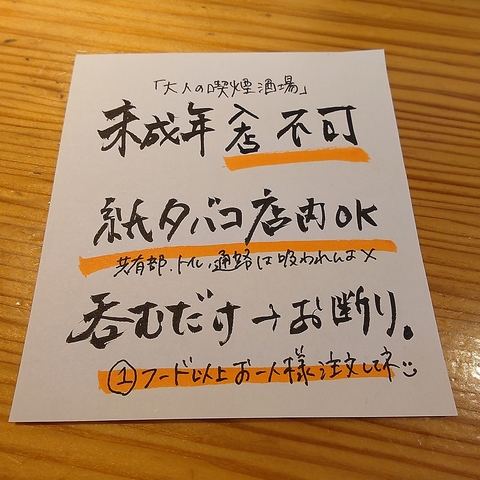 「大人の喫煙酒場」
未成年 入店 不可
紙タバコ店内OK
共有部、トイレ、通路は吸われんよ×
呑むだけ→お断り。
①フード以上お一人様注文してネ☺